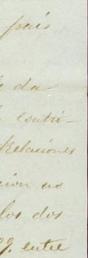 país
da-
contri-
Relaciones
cion no
los dos
entre